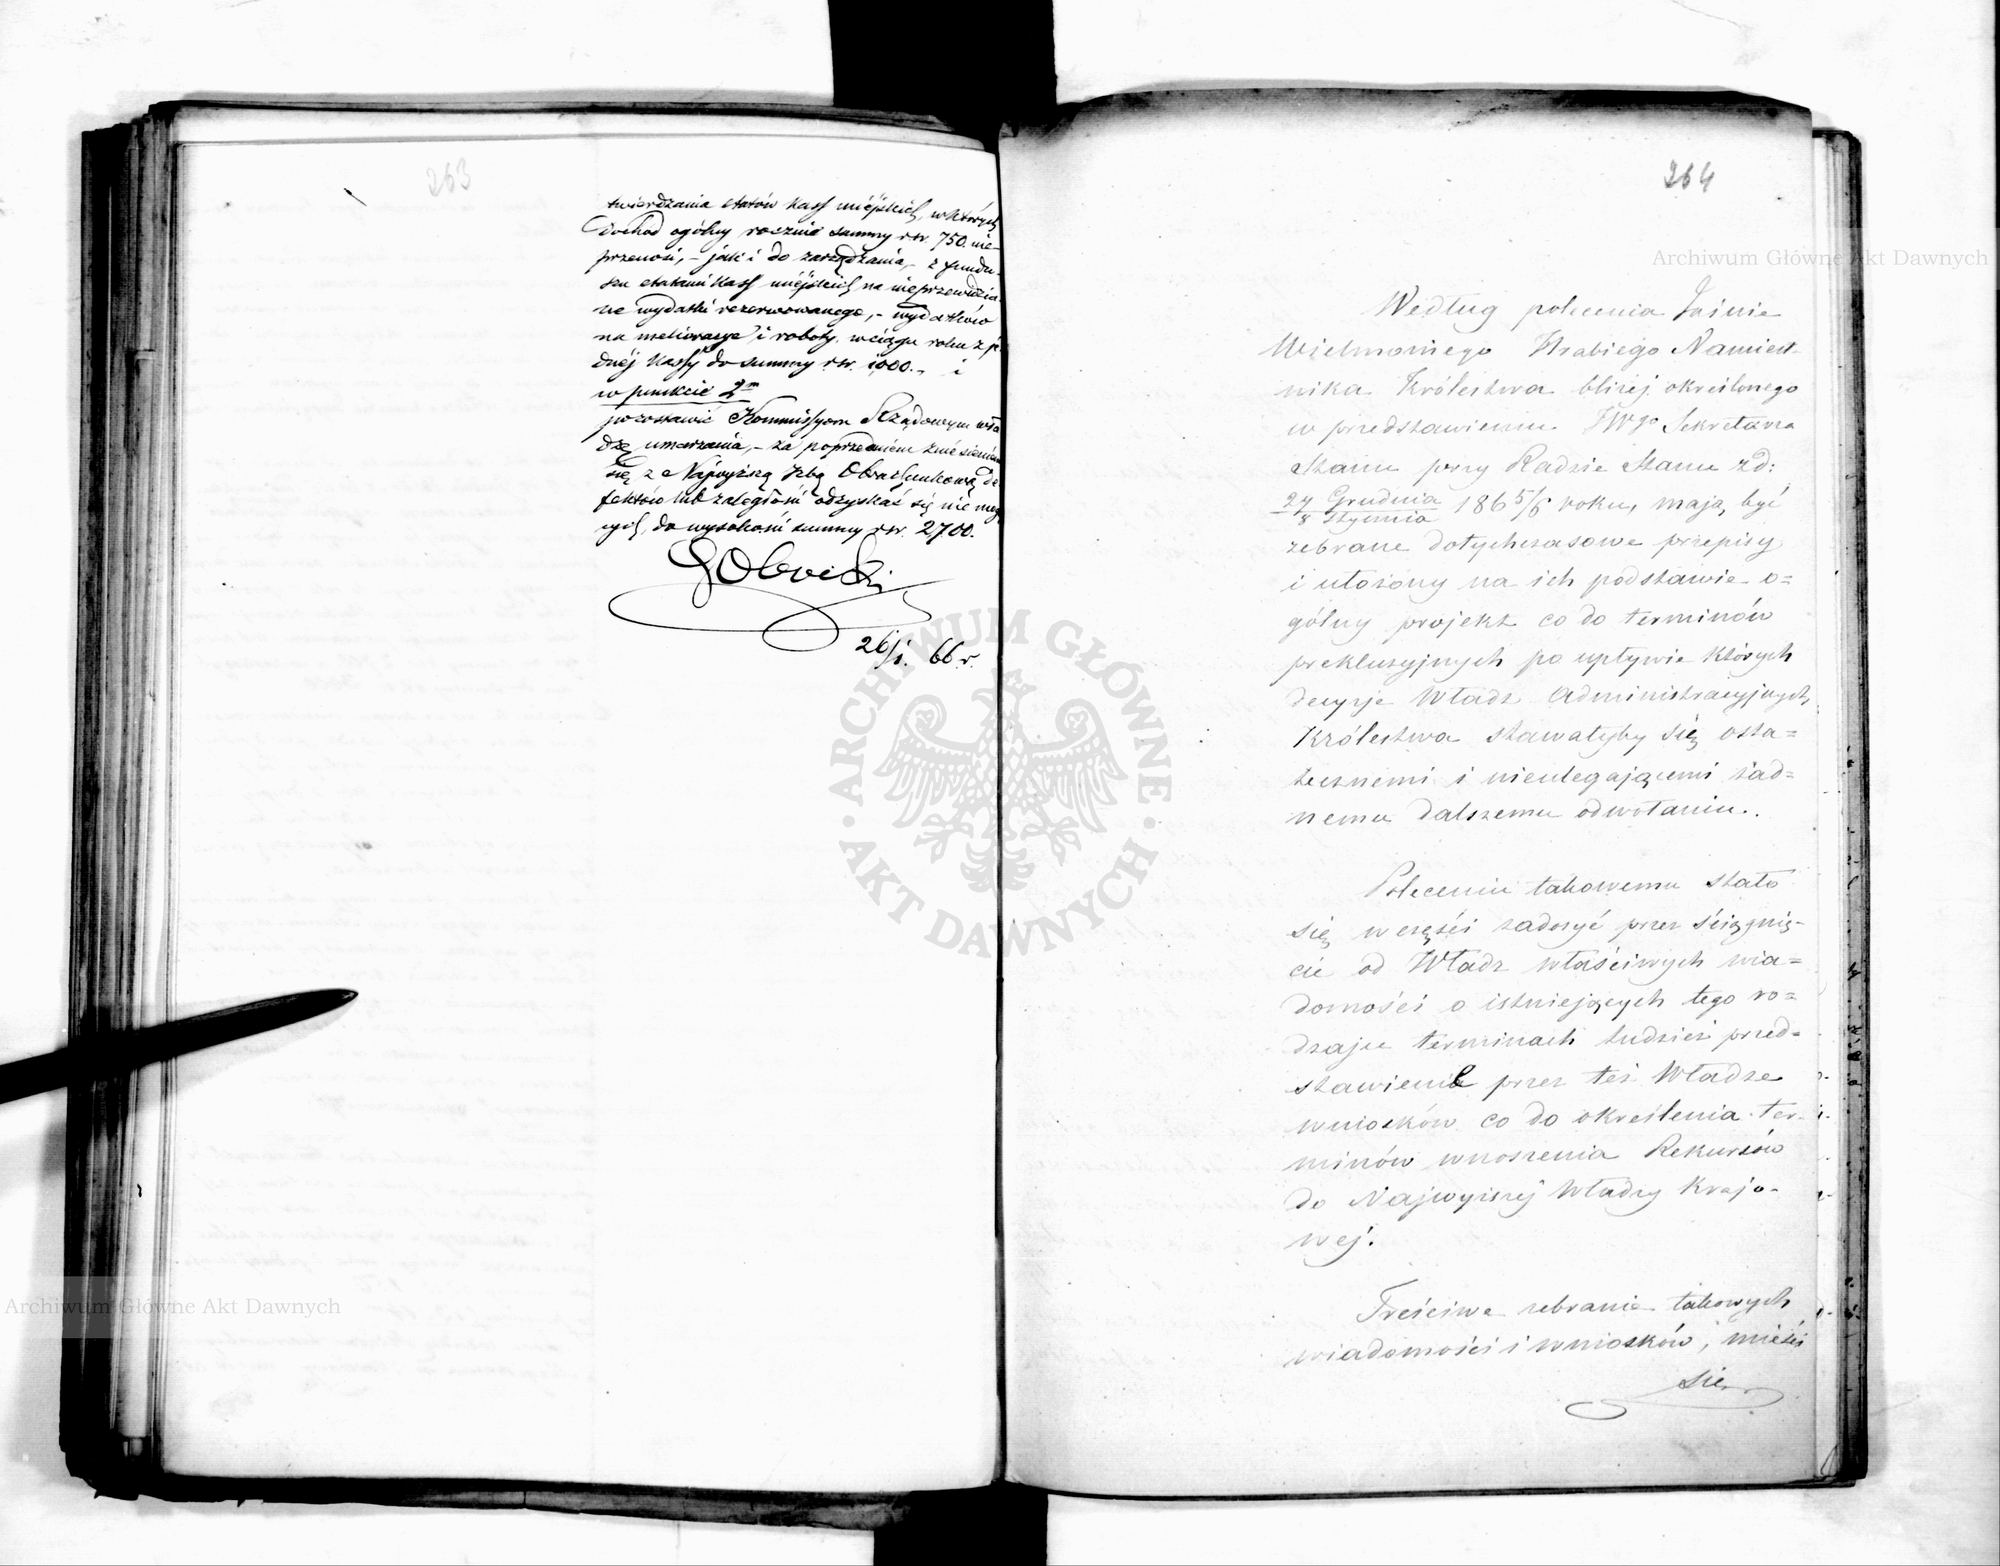 263
twierdzania etatów kass miejskich, w których
dochód ogólny rocznie summy rsr. 750. nie
przenosi, – jak i do zarządzania, – z fundu-
szu etatami kass miejskich na nieprzewidzia-
ne wydatki rezerwowanego, – wydatków
na melioracye i roboty, w ciągu roku z je-
dnéj kassy do summy rsr. 1,000. – i
w punkcie 2m
pozostawić Kommissyom Rządowym wła
dzę umarzania, – za poprzedniem zniesieniem
się z Najwyższą Izbą Obrachunkową de
fektów lub zaległości odzyskać się nie mog
ących, do wysokości summy rsr. 2700.
26/1. 66 r.
264
Według polecenia Jaśnie
Wielmożnego Hrabiego Namiest-
nika Królestwa bliżej określonego
w przedstawieniu JWgo Sekretarza
Stanu przy Radzie Stanu z d:
24 Grudnia
8 Stycznia 1865/6 roku, mają być
zebrane dotychczasowe przepisy
i ułożony na ich podstawie o=
gólny projekt co do terminów
prekluzyjnych po upływie których
decyzje Władz Administracyjnych
Królestwa stawałyby się osta=
tecznemi i nieulegającemi żad=
nemu dalszemu odwołaniu.
Poleceniu takowemu stało
się w części zadosyć przez ściągnię-
cie od Władz właściwych wia=
domości o istniejących tego ro=
dzaju terminach tudzież przed=
stawienie przez też Władze
wniosków co do określenia ter-
minów wnoszenia Rekursów
do Najwyższej Władzy Krajo-
wéj.
Treściwe zebranie takowych
wiadomości i wniosków, mieści
się
Archiwum Główne Akt Dawnych
Archiwum Główne Akt Dawnych
ARCHIWUM GŁÓWNE
AKT DAWNYCH